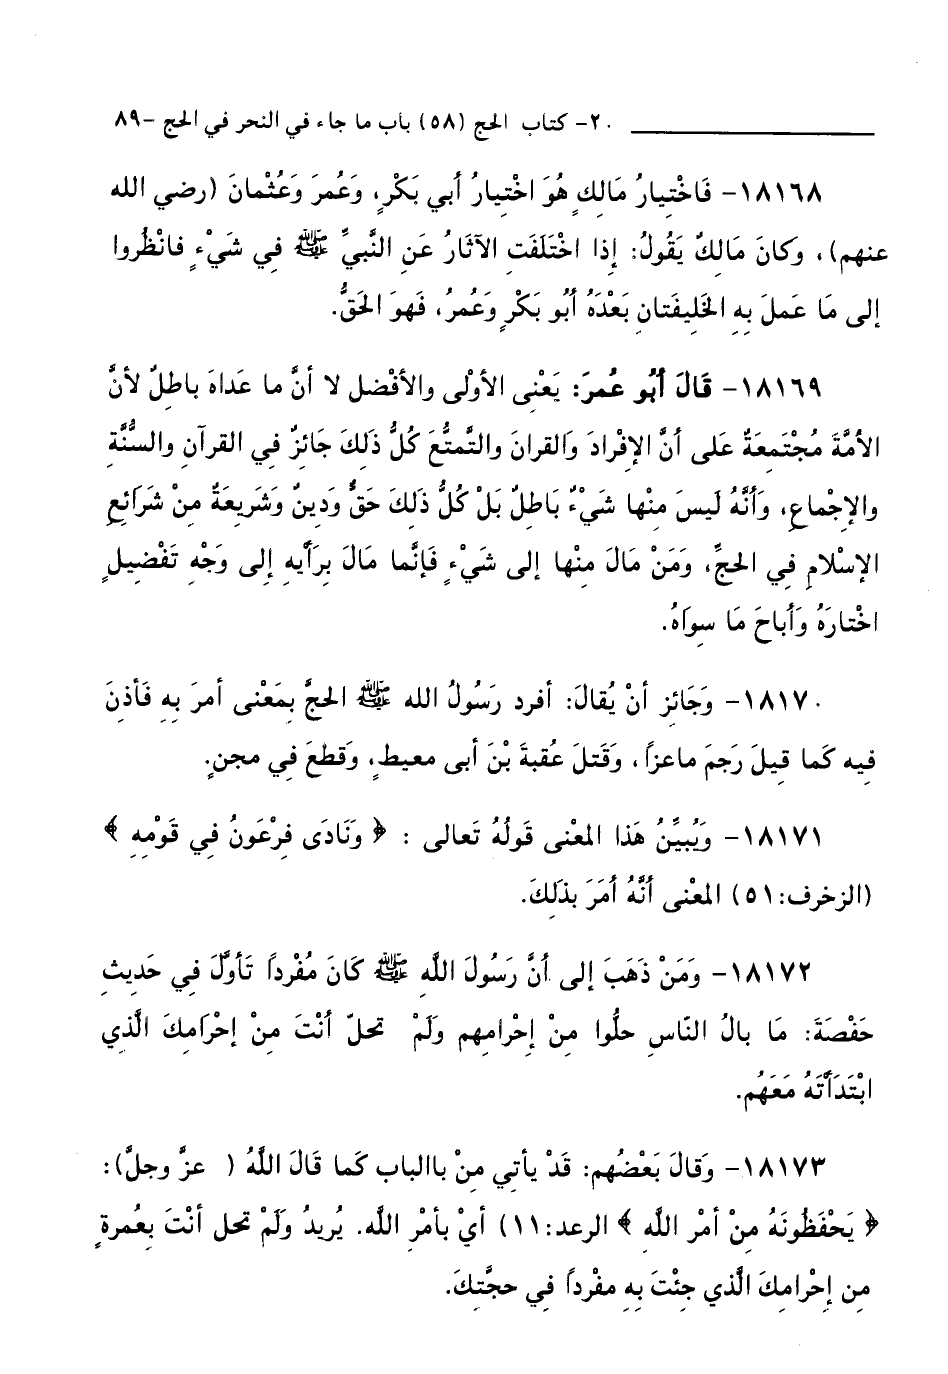 ٢٠- كتاب الحج (٥٨) باب ما جاء في النحر في الحج -٨٩
١٨١٦٨- فَاخْتِيارُ مَالِكٍ هُوَ اخْتِيارُ أبي بَكْرٍ، وَعُمرَ وَعُثْمانَ (رضي الله
عنهم)، وَكانَ مَالِكٌ يَقُولُ: إذا اخْتَلَفَتِ الآثَارُ عَنِ النَّبيِّ ﷺ فِي شَيْءٍ فانْظُروا
إلى مَا عَمِلَ بِهِ الخَلِيفَتانِ بَعْدَهُ أبُو بَكْرٍ وَعُمرُ، فَهوَ الحَقُّ.
١٨١٦٩- قَالَ أبُو عُمرَ: يَعْنِى الأوْلَى والأفْضل لا أنَّ ما عَداهَ باطِلٌ لأنَّ
الأمَّةَ مُجْتَمِعَةٌ عَلى أنَّ الإفْرادَ وَالقِرانَ والتَّمتُّعَ كُلُّ ذَلِكَ جَائِزٌ في القرآنِ والسُّنَّةِ
والإجْماعِ، وَأنَّهُ لَيسَ مِنْها شَيْءٌ بَاطِلٌ بَلْ كُلُّ ذلَكَ حَقٌّ وَدِينٌ وَشَرِيعَةٌ مِنْ شَرَائِعِ
الإسْلامِ فِي الحجِّ، وَمَنْ مَالَ مِنْها إلى شَيْءٍ فَإنَّما مالَ بِرَأيِهِ إلى وَجْهِ تَفْضِيلٍ
اخْتارَهُ وَأباحَ مَا سِواَهُ.
١٨١٧٠- وَجَائِز أنْ يُقالَ: أفرد رَسُولُ الله ﷺ الحجَّ بِمَعْنى أمرَ بِهِ فَأذِنَ
فِيه كَما قِيلَ رَجَمَ ماعزاً، وَقَتلَ عُقبةَ بْنَ أبى معيطٍ، وَقطعَ فِي مجنٍ.
١٨١٧١- وَيُبيِّنُ هَذا المعْنى قَولُهُ تَعالى : ﴿ وَنَادَى فِرْعَونُ فِي قَوْمِهِ ﴾
(الزخرف:٥١) المعْنى أنَّهُ أمَرَ بذلَكَ.
١٨١٧٢- وَمَنْ ذَهَبَ إلى أنَّ رَسُولَ اللَّهِ ﷺ كَانَ مُفْرِداً تَأوَّلَ فِي حَدِيثِ
حَفْصَةَ: مَا بالُ النَّاسِ حلُّوا مِنْ إحْرامِهم وَلَمْ تحلّ أنْتَ مِنْ إحْرَامِكَ الَّذِي
ابْتَدَأتَهُ مَعَهُم.
١٨١٧٣- وَقالَ بَعْضُهم: قَدْ يأتي مِنْ باالباب كَما قَالَ اللَّهُ ( عزَّ وجلَّ):
﴿ يَحْفَظُونَهُ مِنْ أمْرِ اللَّهِ ﴾ الرعد:١١) أيْ بأمْرِ اللَّه. يُرِيدُ وَلَمْ تحل أنْتَ بِعُمرةٍ
مِن إحْرامِكَ الَّذي جِئْتَ بِهِ مفْرداً فِي حجَّتِكَ.